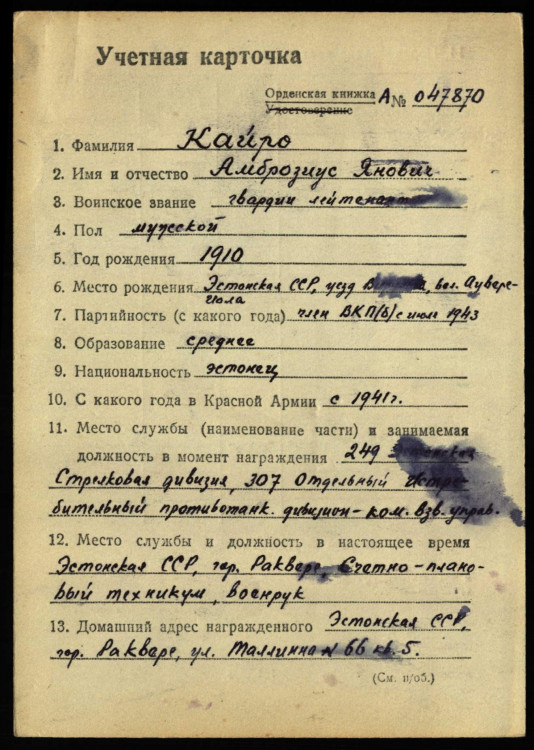 Учетная карточка
Орденская книжка А № 047870
Удостоверение
1. Фамилия Кайро
2. Имя и отчество Амброзиус Янович
3. Воинское звание гвардии лейтенант
4. Пол мужской
5. Год рождения 1910
6. Место рождения Эстонская ССР, уезд вол. Аувере-
7. Партийность (с какого года) член ВКП(б) с июля 1943
8. Образование среднее
9. Национальность эстонец
10. С какого года в Красной Армии с 1941 г.
11. Место службы (наименование части) и занимаемая
должность в момент награждения 249 Эстонская
Стрелковая дивизия, 307 Отдельный Истре-
бительный противотанк. дивизион - ком. взв. управ.
12. Место службы и должность в настоящее время
Эстонская ССР, гор. Раквере, Счетно-плано-
вый техникум, военрук
13. Домашний адрес награжденного Эстонская ССР,
гор. Раквере, ул. Таллинна № 66 кв. 5.
(См. н/об.)